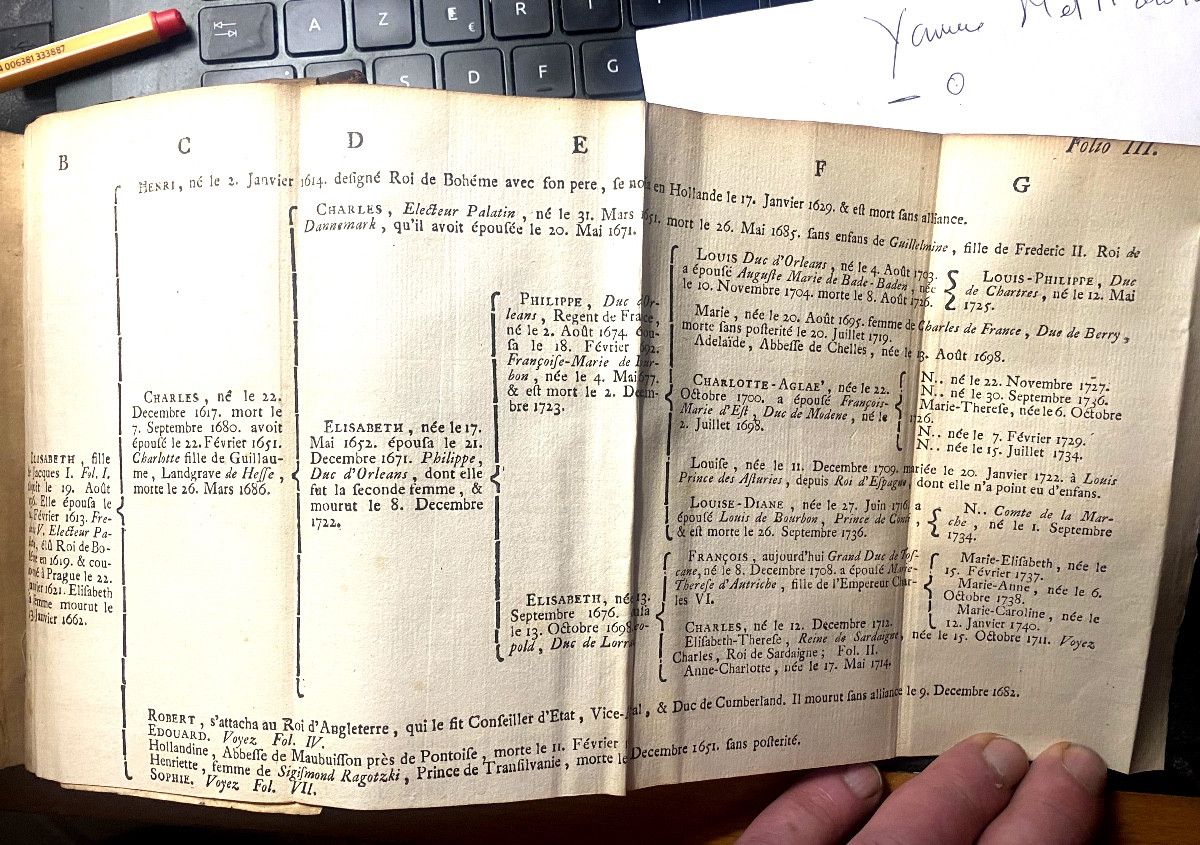 006381333887
A
Z
E
€
R
S
D
F
G
Folio III.
B
C
D
E
F
G
HENRI, né le 2. Janvier 1614. designé Roi de Bohéme avec son pere, se en Hollande le 17. Janvier 1629. & est mort sans alliance.
CHARLES, Electeur Palatin, né le 31. Mars mort le 26. Mai 1685. sans enfans de Guillelmine, fille de Frederic II. Roi de
Dannemark, qu'il avoit épousée le 20. Mai 1671.
fille
Jacques I. Fol. I.
le 19. Août
Elle épousa le
Février 1613. Fre-
V. Electeur Pa-
élû Roi de Bo-
en 1619. & cou-
à Prague le 22.
1621. Elisabeth
femme mourut le
Janvier 1662.
CHARLES, né le 22.
Decembre 1617. mort le
7. Septembre 1680. avoit
épousé le 22. Février 1651.
Charlotte fille de Guillau-
me, Landgrave de Hesse,
morte le 26. Mars 1686.
ELISABETH, née le 17.
Mai 1652. épousa le 21.
Decembre 1671. Philippe,
Duc d'Orleans, dont elle
fut la seconde femme, &
mourut le 8. Decembre
1722.
PHILIPPE, Duc
leans, Regent de
né le 2. Août 1674.
sa le 18. Février
Françoise-Marie de
bon, née le 4. Mai
& est mort le 2.
bre 1723.
ELISABETH,
Septembre 1676.
le 13. Octobre 1698.
pold, Duc de
LOUIS Duc d'Orleans, né le 4. Août 1703.
a épousé Auguste Marie de Bade-Baden, née
le 10. Novembre 1704. morte le 8. Août 1726.
LOUIS-PHILIPPE, Duc
de Chartres, né le 12. Mai
1725.
Marie, née le 20. Août 1695. femme de Charles de France, Duc de Berry,
morte sans posterité le 20. Juillet 1719.
Adelaïde, Abbesse de Chelles, née le 13. Août 1698.
CHARLOTTE-AGLAE', née le 22.
Octobre 1700. a épousé François-
Marie d'Est, Duc de Modene, né le
2. Juillet 1698.
N.. né le 22. Novembre 1727.
N.. né le 30. Septembre 1736.
Marie-Therese, née le 6. Octobre
1726.
N.. née le 7. Février 1729.
N.. née le 15. Juillet 1734.
Louise, née le 11. Decembre 1709. mariée le 20. Janvier 1722. à Louis
Prince des Asturies, depuis Roi d'Espagne dont elle n'a point eu d'enfans.
LOUISE-DIANE, née le 27. Juin 1716. a
épousé Louis de Bourbon, Prince de Conti,
& est morte le 26. Septembre 1736.
N.. Comte de la Mar-
che, né le 1. Septembre
1734.
FRANÇOIS, aujourd'hui Grand Duc de Tos-
cane, né le 8. Decembre 1708. a épousé Marie-
Therese d'Autriche, fille de l'Empereur Char-
les VI.
Marie-Elisabeth, née le
15. Février 1737.
Marie-Anne, née le 6.
Octobre 1738.
Marie-Caroline, née le
12. Janvier 1740.
CHARLES, né le 12. Decembre 1712.
Elisabeth-Therese, Reine de Sardaigne, née le 15. Octobre 1711. Voyez
Charles, Roi de Sardaigne; Fol. II.
Anne-Charlotte, née le 17. Mai 1714.
ROBERT, s'attacha au Roi d'Angleterre, qui le fit Conseiller d'Etat, & Duc de Cumberland. Il mourut sans alliance le 9. Decembre 1682.
EDOUARD. Voyez Fol. IV.
Hollandine, Abbesse de Maubuisson près de Pontoise, morte le 11. Février
Henriette, femme de Sigismond Ragotzki, Prince de Transilvanie, morte le Decembre 1651. sans posterité.
SOPHIE. Voyez Fol. VII.